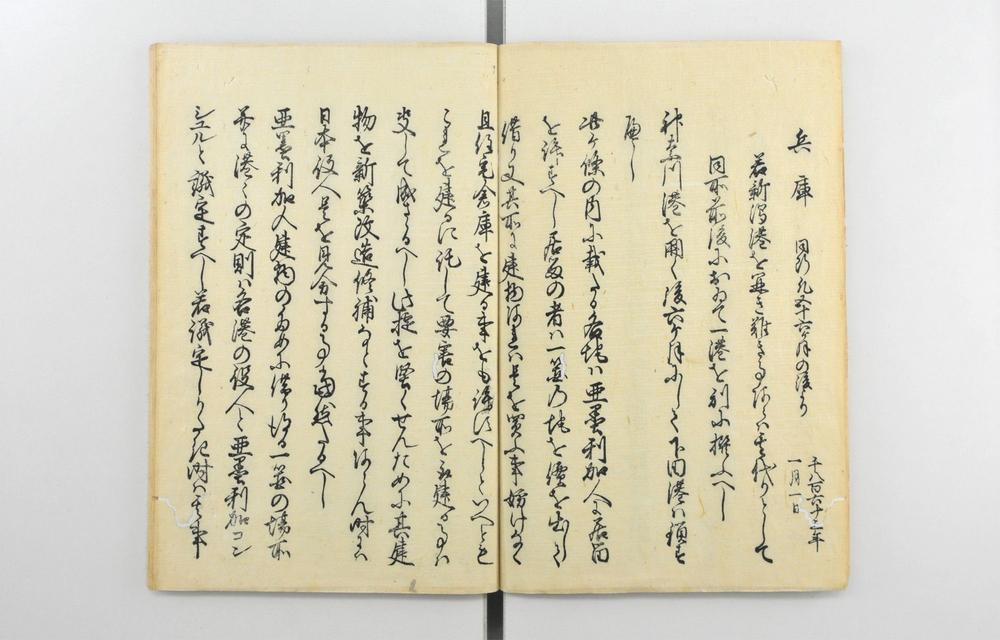 兵庫 同断凡五十六ケ月の後より 千八百六十三年
一月一日
若新潟港を開き難き事あらハ其代りとして
同所前後におゐて一港を別に撰ふへし
神奈川港を開く後六ケ月にして下田港ハ鎖す
へし
此ケ條の内に載たる各地ハ亜墨利加人に居留
を許すへし居留の者ハ一箇の地を價を出して
借り又其所に建物あれハ是を買ふ事妨けなく
且住宅倉庫を建る事をも許すへしといへとも
これを建るに託して要害の場所を取建る事ハ
決して成さるへし此掟を堅くせんために其建
物を新築改造修補なとする事あらん時にハ
日本役人是を見分する事当然たるへし
亜墨利加人建物のために借り得る一箇の場所
并に港々の定則ハ各港の役人と亜墨利加コン
シユルと議定すへし若議定しかたき時ハ其事